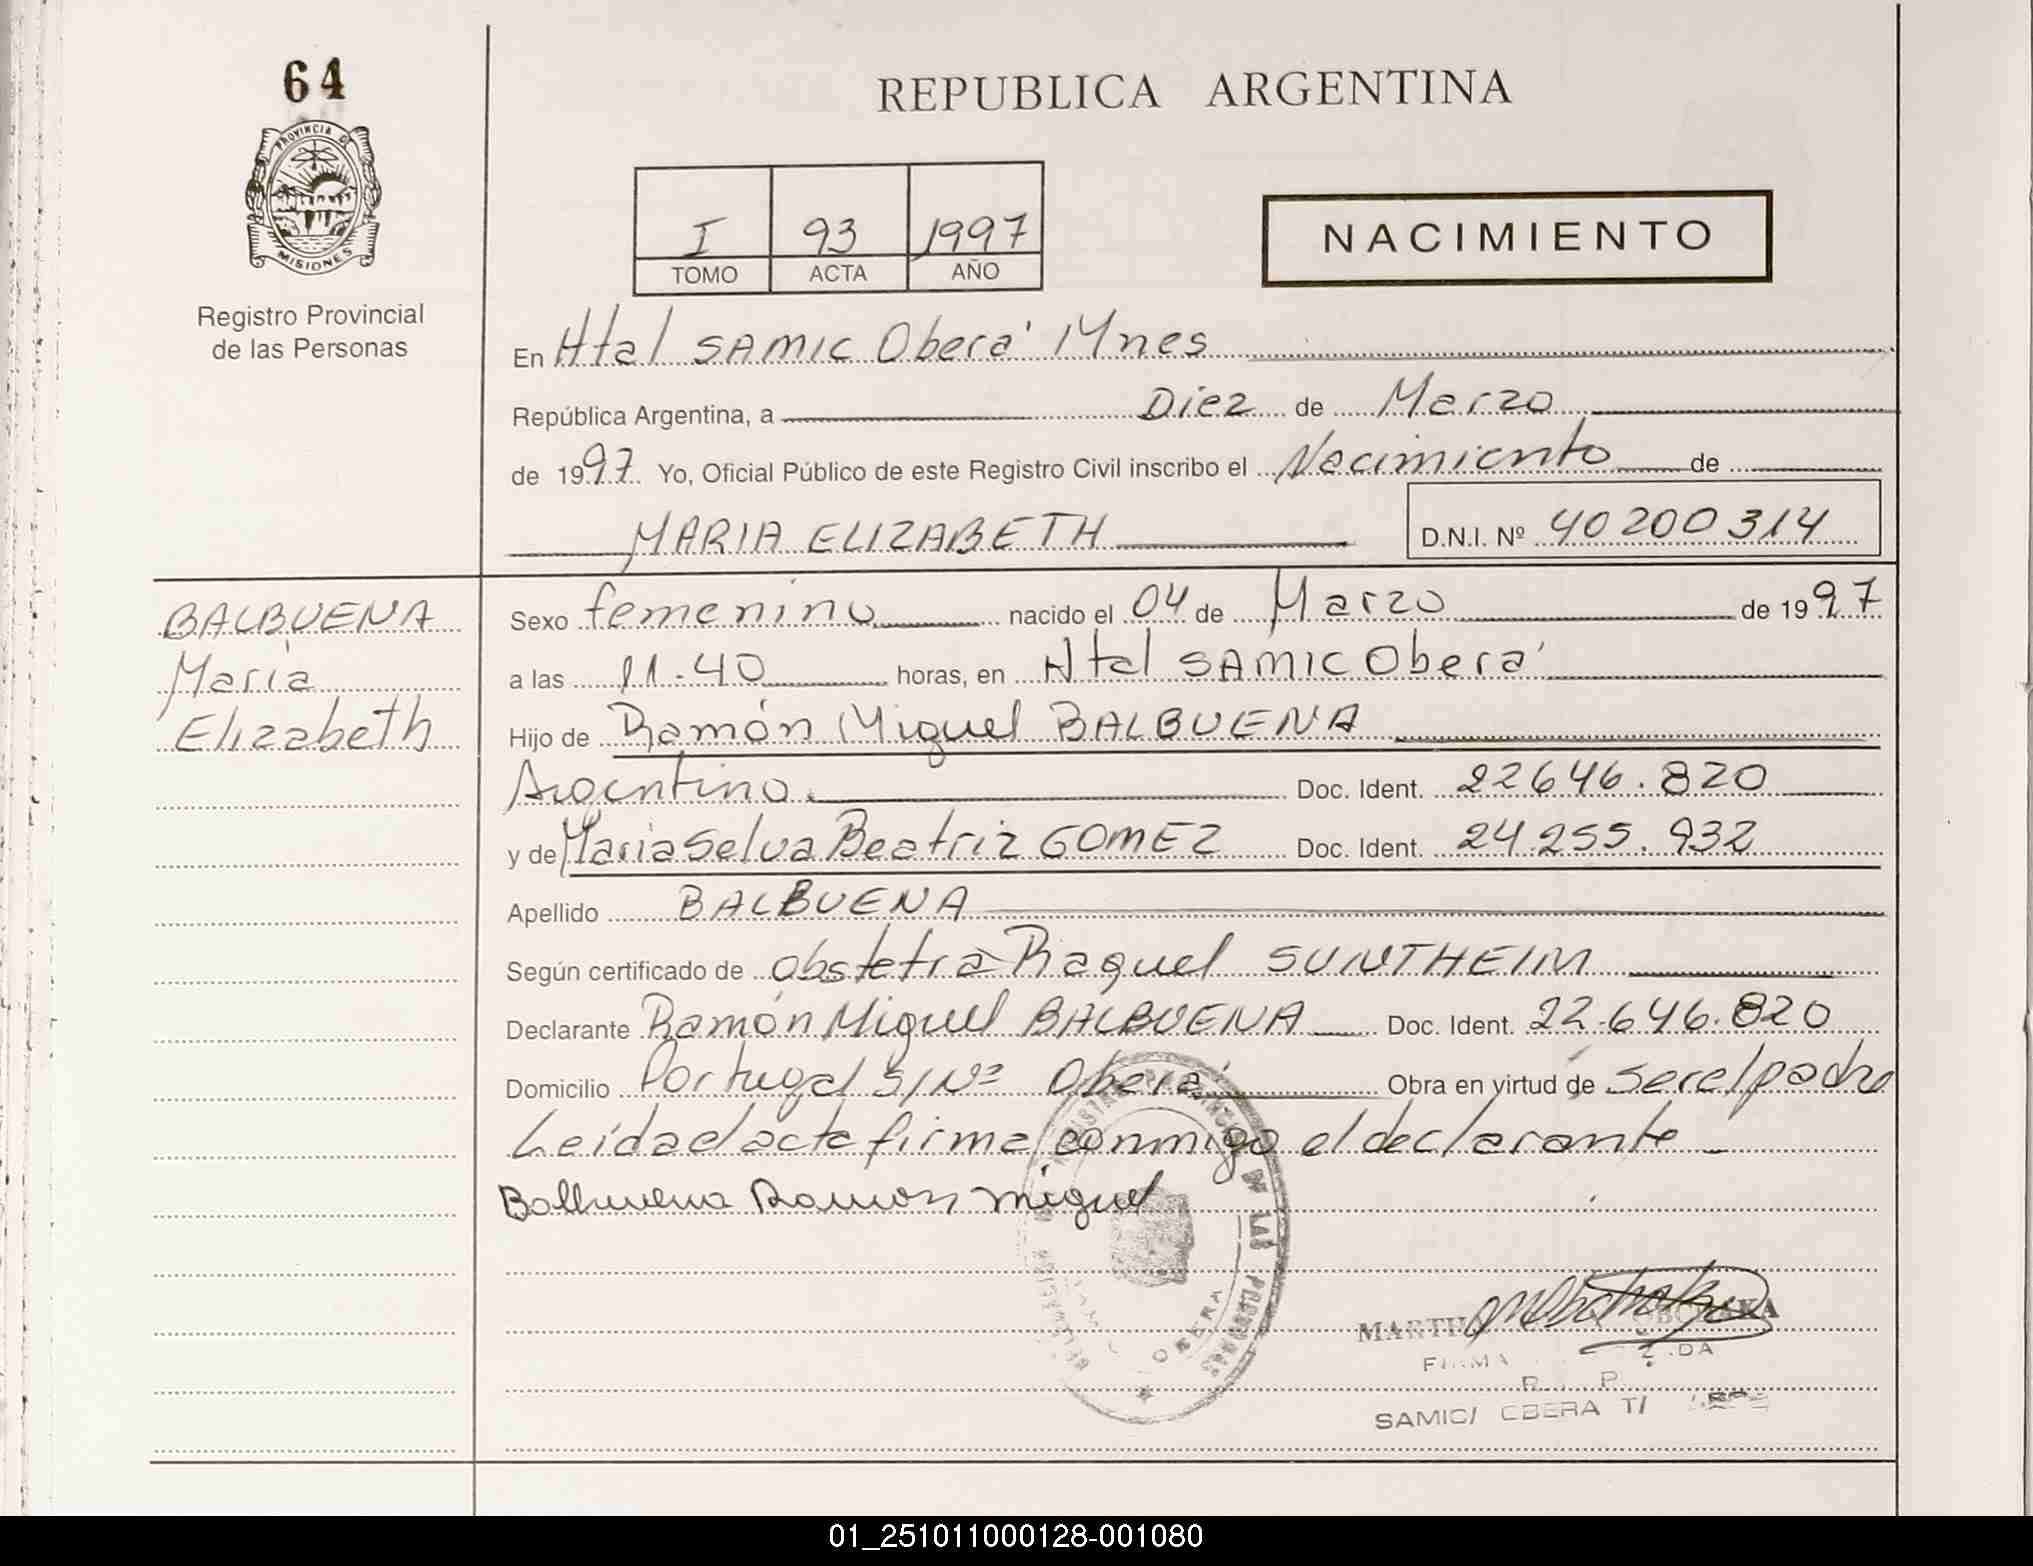 64
PROVINCIA DE
MISIONES
Registro Provincial
de las Personas
REPUBLICA ARGENTINA
I 93 1997
TOMO ACTA AÑO
NACIMIENTO
En Htal SAMIC Oberá Mnes
República Argentina, a Diez de Marzo
de 1997 Yo, Oficial Público de este Registro Civil inscribo el Nacimiento de
MARIA ELIZABETH D.N.I. Nº 40200314
BALBUENA
María
Elizabeth
Sexo femenino nacido el 04 de Marzo de 1997
a las 11.40 horas, en Htal SAMIC Oberá
Hijo de Ramón Miguel BALBUENA
Argentino. Doc. Ident. 22646.820
y de Maria Selva Beatriz GOMEZ Doc. Ident. 24.255.932
Apellido BALBUENA
Según certificado de obstetra Raquel SUNTHEIM
Declarante Ramón Miguel BALBUENA Doc. Ident. 22.646.820
Domicilio Portugal S/Nº Oberá Obra en virtud de ser el padre
Leída el acta firma conmigo el declarante
Balbuena Ramon miguel
DE LAS PERSONAS
OBERA
MARTHA
SAMIC/ OBERA
01_251011000128-001080